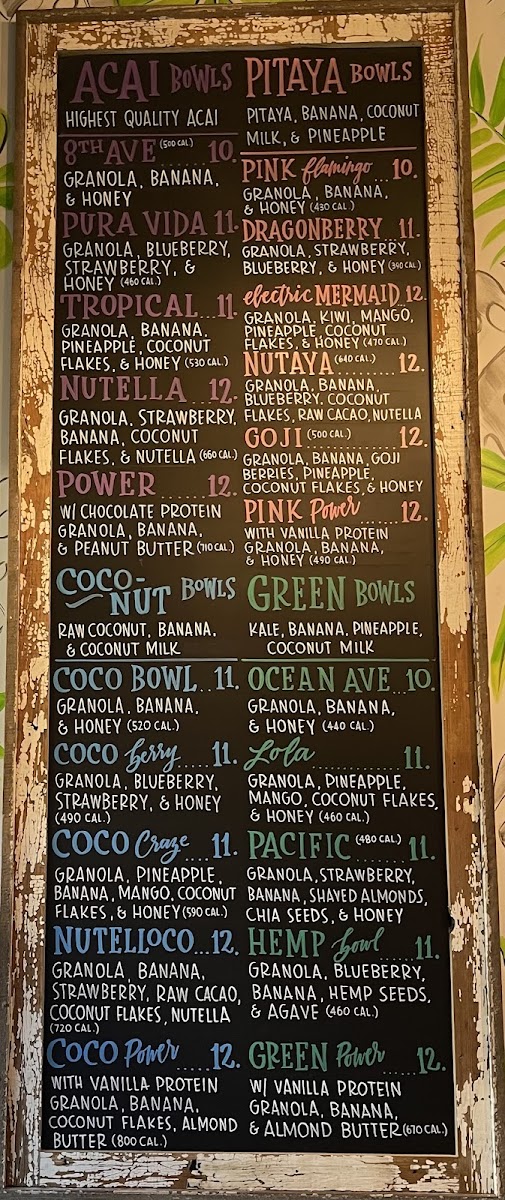 ACAI BOWLS
HIGHEST QUALITY ACAI
8TH AVE (500 CAL.) 10.
GRANOLA, BANANA,
& HONEY
PURA VIDA 11.
GRANOLA, BLUEBERRY,
STRAWBERRY, &
HONEY (460 CAL.)
TROPICAL...11.
GRANOLA, BANANA,
PINEAPPLE, COCONUT
FLAKES, & HONEY (530 CAL.)
NUTELLA ...12.
GRANOLA, STRAWBERRY,
BANANA, COCONUT
FLAKES, & NUTELLA (660 CAL.)
POWER ......12.
W/ CHOCOLATE PROTEIN
GRANOLA, BANANA,
& PEANUT BUTTER (710 CAL.)
PITAYA BOWLS
PITAYA, BANANA, COCONUT
MILK, & PINEAPPLE
PINK flamingo ... 10.
GRANOLA, BANANA,
& HONEY (430 CAL.)
DRAGONBERRY..11.
GRANOLA, STRAWBERRY,
BLUEBERRY, & HONEY (390 CAL.)
electric MERMAID..12.
GRANOLA, KIWI, MANGO,
PINEAPPLE, COCONUT
FLAKES, & HONEY (470 CAL.)
NUTAYA (640 CAL.) ........12.
GRANOLA, BANANA,
BLUEBERRY, COCONUT
FLAKES, RAW CACAO, NUTELLA
GOJI (500 CAL.) ..........12.
GRANOLA, BANANA, GOJI
BERRIES, PINEAPPLE,
COCONUT FLAKES, & HONEY
PINK Power ......12.
WITH VANILLA PROTEIN
GRANOLA, BANANA,
& HONEY (490 CAL.)
COCO-
NUT BOWLS
RAW COCONUT, BANANA,
& COCONUT MILK
COCO BOWL...11.
GRANOLA, BANANA,
& HONEY (520 CAL.)
COCO berry.....11.
GRANOLA, BLUEBERRY,
STRAWBERRY, & HONEY
(490 CAL.)
COCO Craze....11.
GRANOLA, PINEAPPLE,
BANANA, MANGO, COCONUT
FLAKES, & HONEY (590 CAL.)
NUTELLOCO...12.
GRANOLA, BANANA,
STRAWBERRY, RAW CACAO,
COCONUT FLAKES, NUTELLA
(720 CAL.)
COCO Power.....12.
WITH VANILLA PROTEIN
GRANOLA, BANANA,
COCONUT FLAKES, ALMOND
BUTTER (800 CAL.)
GREEN BOWLS
KALE, BANANA, PINEAPPLE,
COCONUT MILK
OCEAN AVE..10.
GRANOLA, BANANA,
& HONEY (440 CAL.)
Lola.............11.
GRANOLA, PINEAPPLE,
MANGO, COCONUT FLAKES,
& HONEY (460 CAL.)
PACIFIC (480 CAL.) .....11.
GRANOLA, STRAWBERRY,
BANANA, SHAVED ALMONDS,
CHIA SEEDS, & HONEY
HEMP bowl ....11.
GRANOLA, BLUEBERRY,
BANANA, HEMP SEEDS,
& AGAVE (460 CAL.)
GREEN Power.....12.
W/ VANILLA PROTEIN
GRANOLA, BANANA,
& ALMOND BUTTER (670 CAL.)